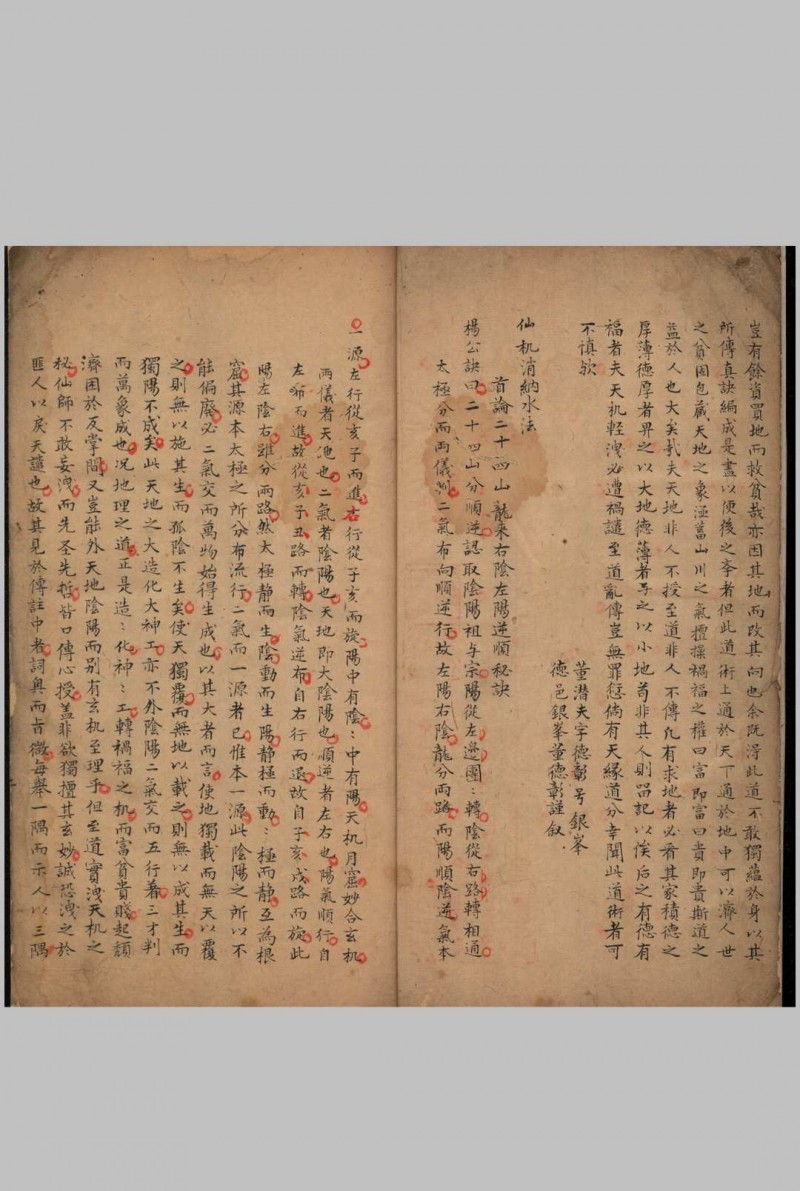 豈有餘資買地而救貧哉亦因其地而改其向也余既得此道不敢獨蘊於身以其
所傳真訣編成是書以便後之孝者但此道術上通於天下通於地中可以濟人世
之貧困包藏天地之象涵蓄山川之氣擅操禍福之權曰富即富曰貴即貴斯道之
益於人也大矣哉夫天地非人不授至道非人不傳凡有求地者必看其家積德之
厚薄德厚者畀之以大地德薄者予之以小地苟非其人則器記以俟后之有德有
福者夫天机輕洩必遭禍譴至道亂傳豈無罪愆倘有天緣道分幸聞此道術者可
不慎欤
董潜夫字德彰号銀峯
德邑銀峯董德彰謹叙
仙机消納水法
首論二十四山龍來右陰左陽逆順秘訣
楊公訣曰二十四山分順逆認取陰陽祖与宗陽從左邊團〻轉陰從右路轉相通
太極分而兩儀判二氣布而順逆行故左陽右陰龍分兩路而陽順陰逆氣本
一源左行從亥子而進右行從子亥而旋陽中有陰〻中有陽天机月窟妙合玄机
兩儀者天地也二氣者陰陽也天地即大陰陽也順逆者左右也陽氣順行自
左布而進故從亥子丑路而轉陰氣逆布自右行而退故自子亥戌路而旋此
陽左陰右雖分兩路然太極静而生陰動而生陽静極而動〻極而静互為根
窟其源本太極之所分布流行二氣而一源者已惟本一源此陰陽之所以不
能偏廢必二氣交而萬物始得生成也以其大者而言使地獨載而無天以覆
之則無以施其生而孤陰不生矣使天獨覆而無地以載之則無以成其生而
獨陽不成矣此天地之大造化大神工亦不外陰陽二氣交而五行着三才判
而萬象成也况地理之道正是造〻化神〻工轉禍福之机而富貧貴賤起顏
濟困於反掌間又豈能外天地陰陽而别有玄机至理乎但至道實洩天机之
秘仙師不敢妄洩而先圣先哲皆口傳心授盖非欲獨擅其玄妙誠恐洩之於
匪人以戾天譴也故其見於傳註中者詞奥而旨微每舉一隅而示人以三隅